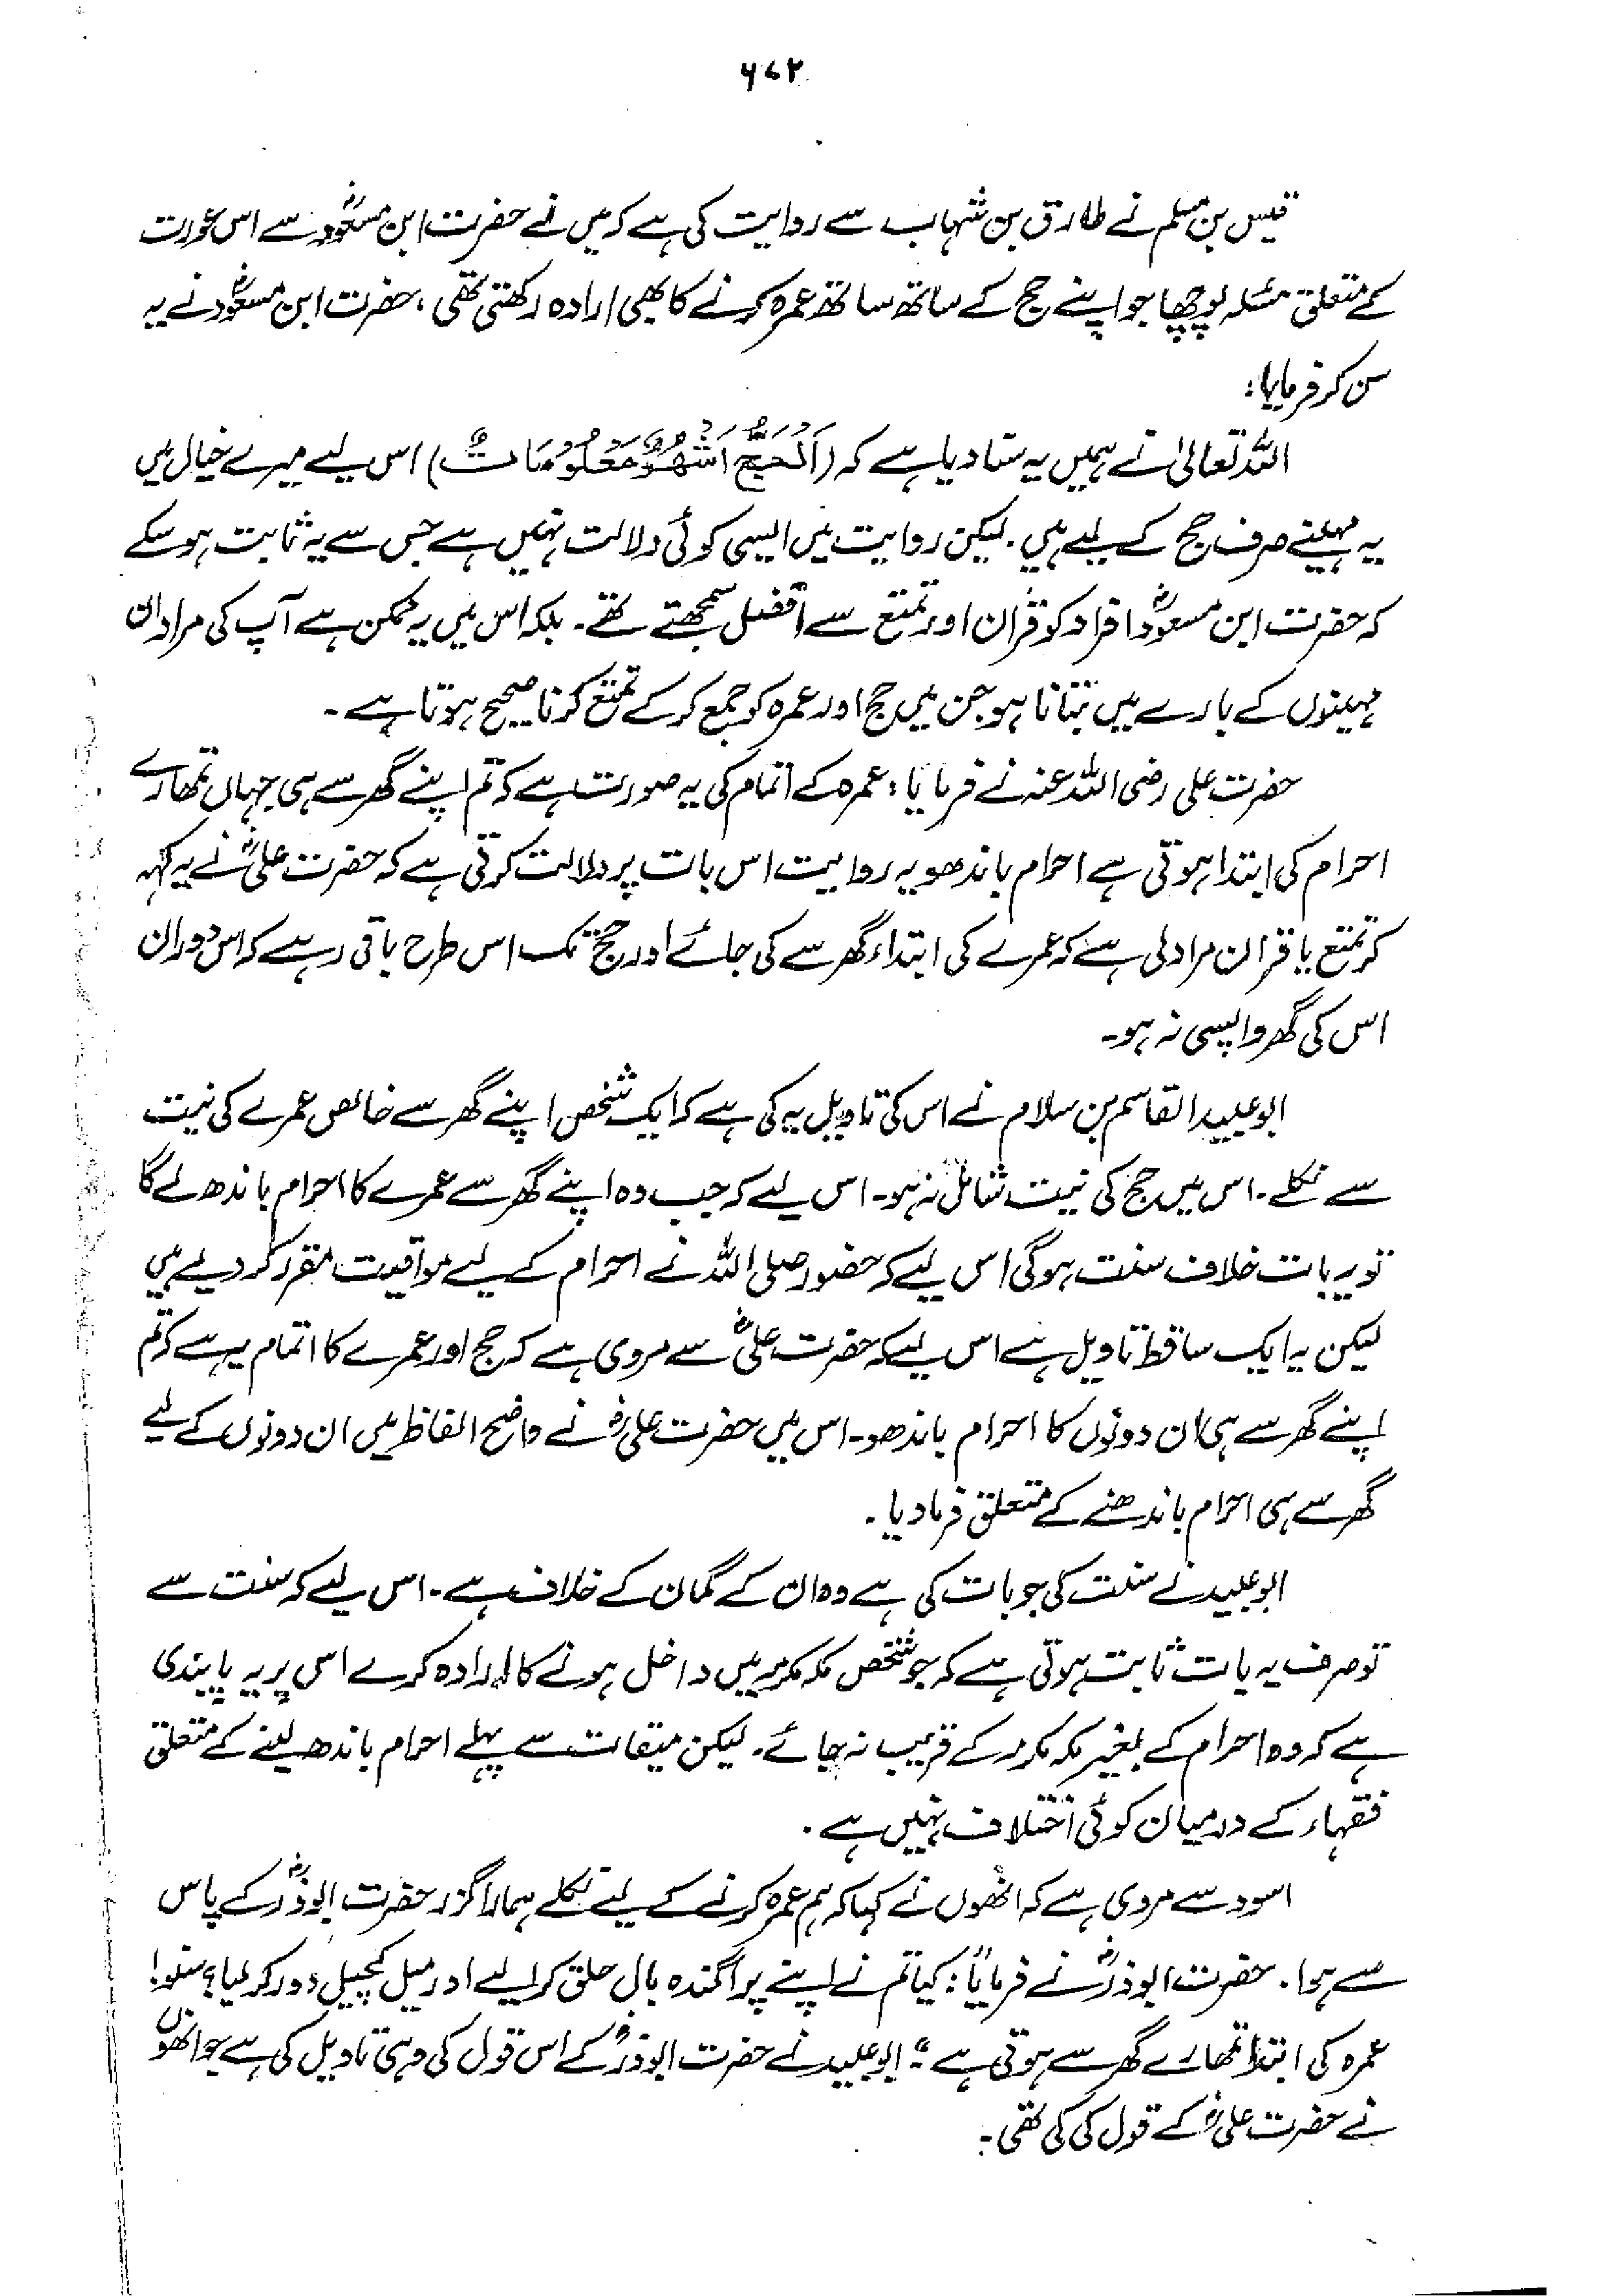 ۶۷۲
قیس بن مسلم نے طارق بن شہاب سے روایت کی ہے کہ میں نے حضرت ابن مسعودؓ سے اس عورت
کے متعلق مسئلہ پوچھا جو اپنے حج کے ساتھ ساتھ عمرہ کرنے کا بھی ارادہ رکھتی تھی، حضرت ابن مسعودؓ نے یہ
سن کر فرمایا:
اللہ تعالیٰ نے ہمیں یہ بتا دیا ہے کہ (اَلْحَجُّ اَشْهُرٌ مَعْلُوْمَاتٌ) اس لیے میرے خیال میں
یہ مہینے صرف حج کے لیے ہیں۔ لیکن روایت میں ایسی کوئی دلالت نہیں ہے جس سے یہ ثابت ہو سکے
کہ حضرت ابن مسعودؓ افراد کو قران اور تمتع سے افضل سمجھتے تھے۔ بلکہ اس میں یہ ممکن ہے آپ کی مراد ان
مہینوں کے بارے میں بتانا ہو جن میں حج اور عمرہ کو جمع کر کے تمتع کرنا صحیح ہوتا ہے۔
حضرت علی رضی اللہ عنہ نے فرمایا: عمرہ کے اتمام کی یہ صورت ہے کہ تم اپنے گھر سے ہی جہاں تمھارے
احرام کی ابتدا ہوتی ہے احرام باندھو یہ روایت اس بات پر دلالت کرتی ہے کہ حضرت علیؓ نے یہ کہہ
کر تمتع یا قران مراد لی ہے کہ عمرے کی ابتداء گھر سے کی جائے اور حج تک اس طرح باقی رہے کہ اس دوران
اس کی گھر واپسی نہ ہو۔
ابوعبید القاسم بن سلام نے اس کی تاویل یہ کی ہے کہ ایک شخص اپنے گھر سے خالص عمرے کی نیت
سے نکلے۔ اس میں حج کی نیت شامل نہ ہو۔ اس لیے کہ جب وہ اپنے گھر سے عمرے کا احرام باندھ لے گا
تو یہ بات خلاف سنت ہوگی اس لیے کہ حضور صلی اللہ نے احرام کے لیے مواقیت مقرر کر دیے ہیں
لیکن یہ ایک ساقط تاویل ہے اس لیے کہ حضرت علیؓ سے مروی ہے کہ حج اور عمرے کا اتمام یہ ہے کہ تم
اپنے گھر سے ہی ان دونوں کا احرام باندھو۔ اس میں حضرت علیؓ نے واضح الفاظ میں ان دونوں کے لیے
گھر سے ہی احرام باندھنے کے متعلق فرما دیا۔
ابوعبید نے سنت کی جو بات کی ہے وہ ان کے گمان کے خلاف ہے۔ اس لیے کہ سنت سے
تو صرف یہ بات ثابت ہوتی ہے کہ جو شخص مکہ مکرمہ میں داخل ہونے کا ارادہ کرے اس پر یہ پابندی
ہے کہ وہ احرام کے بغیر مکہ مکرمہ کے قریب نہ جائے۔ لیکن میقات سے پہلے احرام باندھ لینے کے متعلق
فقہاء کے درمیان کوئی اختلاف نہیں ہے۔
اسود سے مروی ہے کہ انھوں نے کہا کہ ہم عمرہ کرنے کے لیے نکلے ہمارا گزر حضرت ابوذرؓ کے پاس
سے ہوا۔ حضرت ابوذرؓ نے فرمایا: "کیا تم نے اپنے پراگندہ بال حلق کرا لیے اور میل کچیل دور کر لیا؟ سنو!
عمرہ کی ابتدا تمھارے گھر سے ہوتی ہے"۔ ابوعبید نے حضرت ابوذرؓ کے اس قول کی وہی تاویل کی ہے جو انھوں
نے حضرت علیؓ کے قول کی کی تھی۔